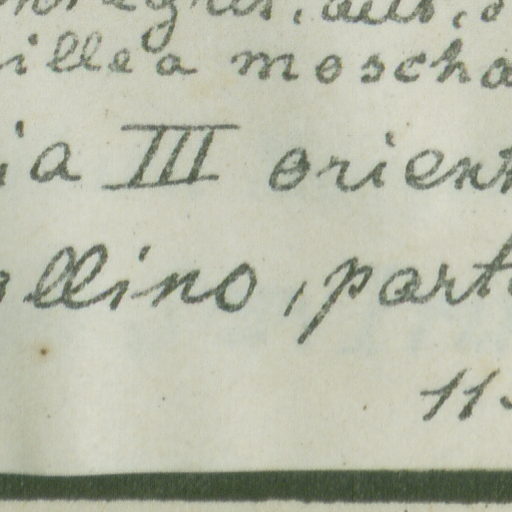 illea moscha
ia III orient
ollino, part
11.